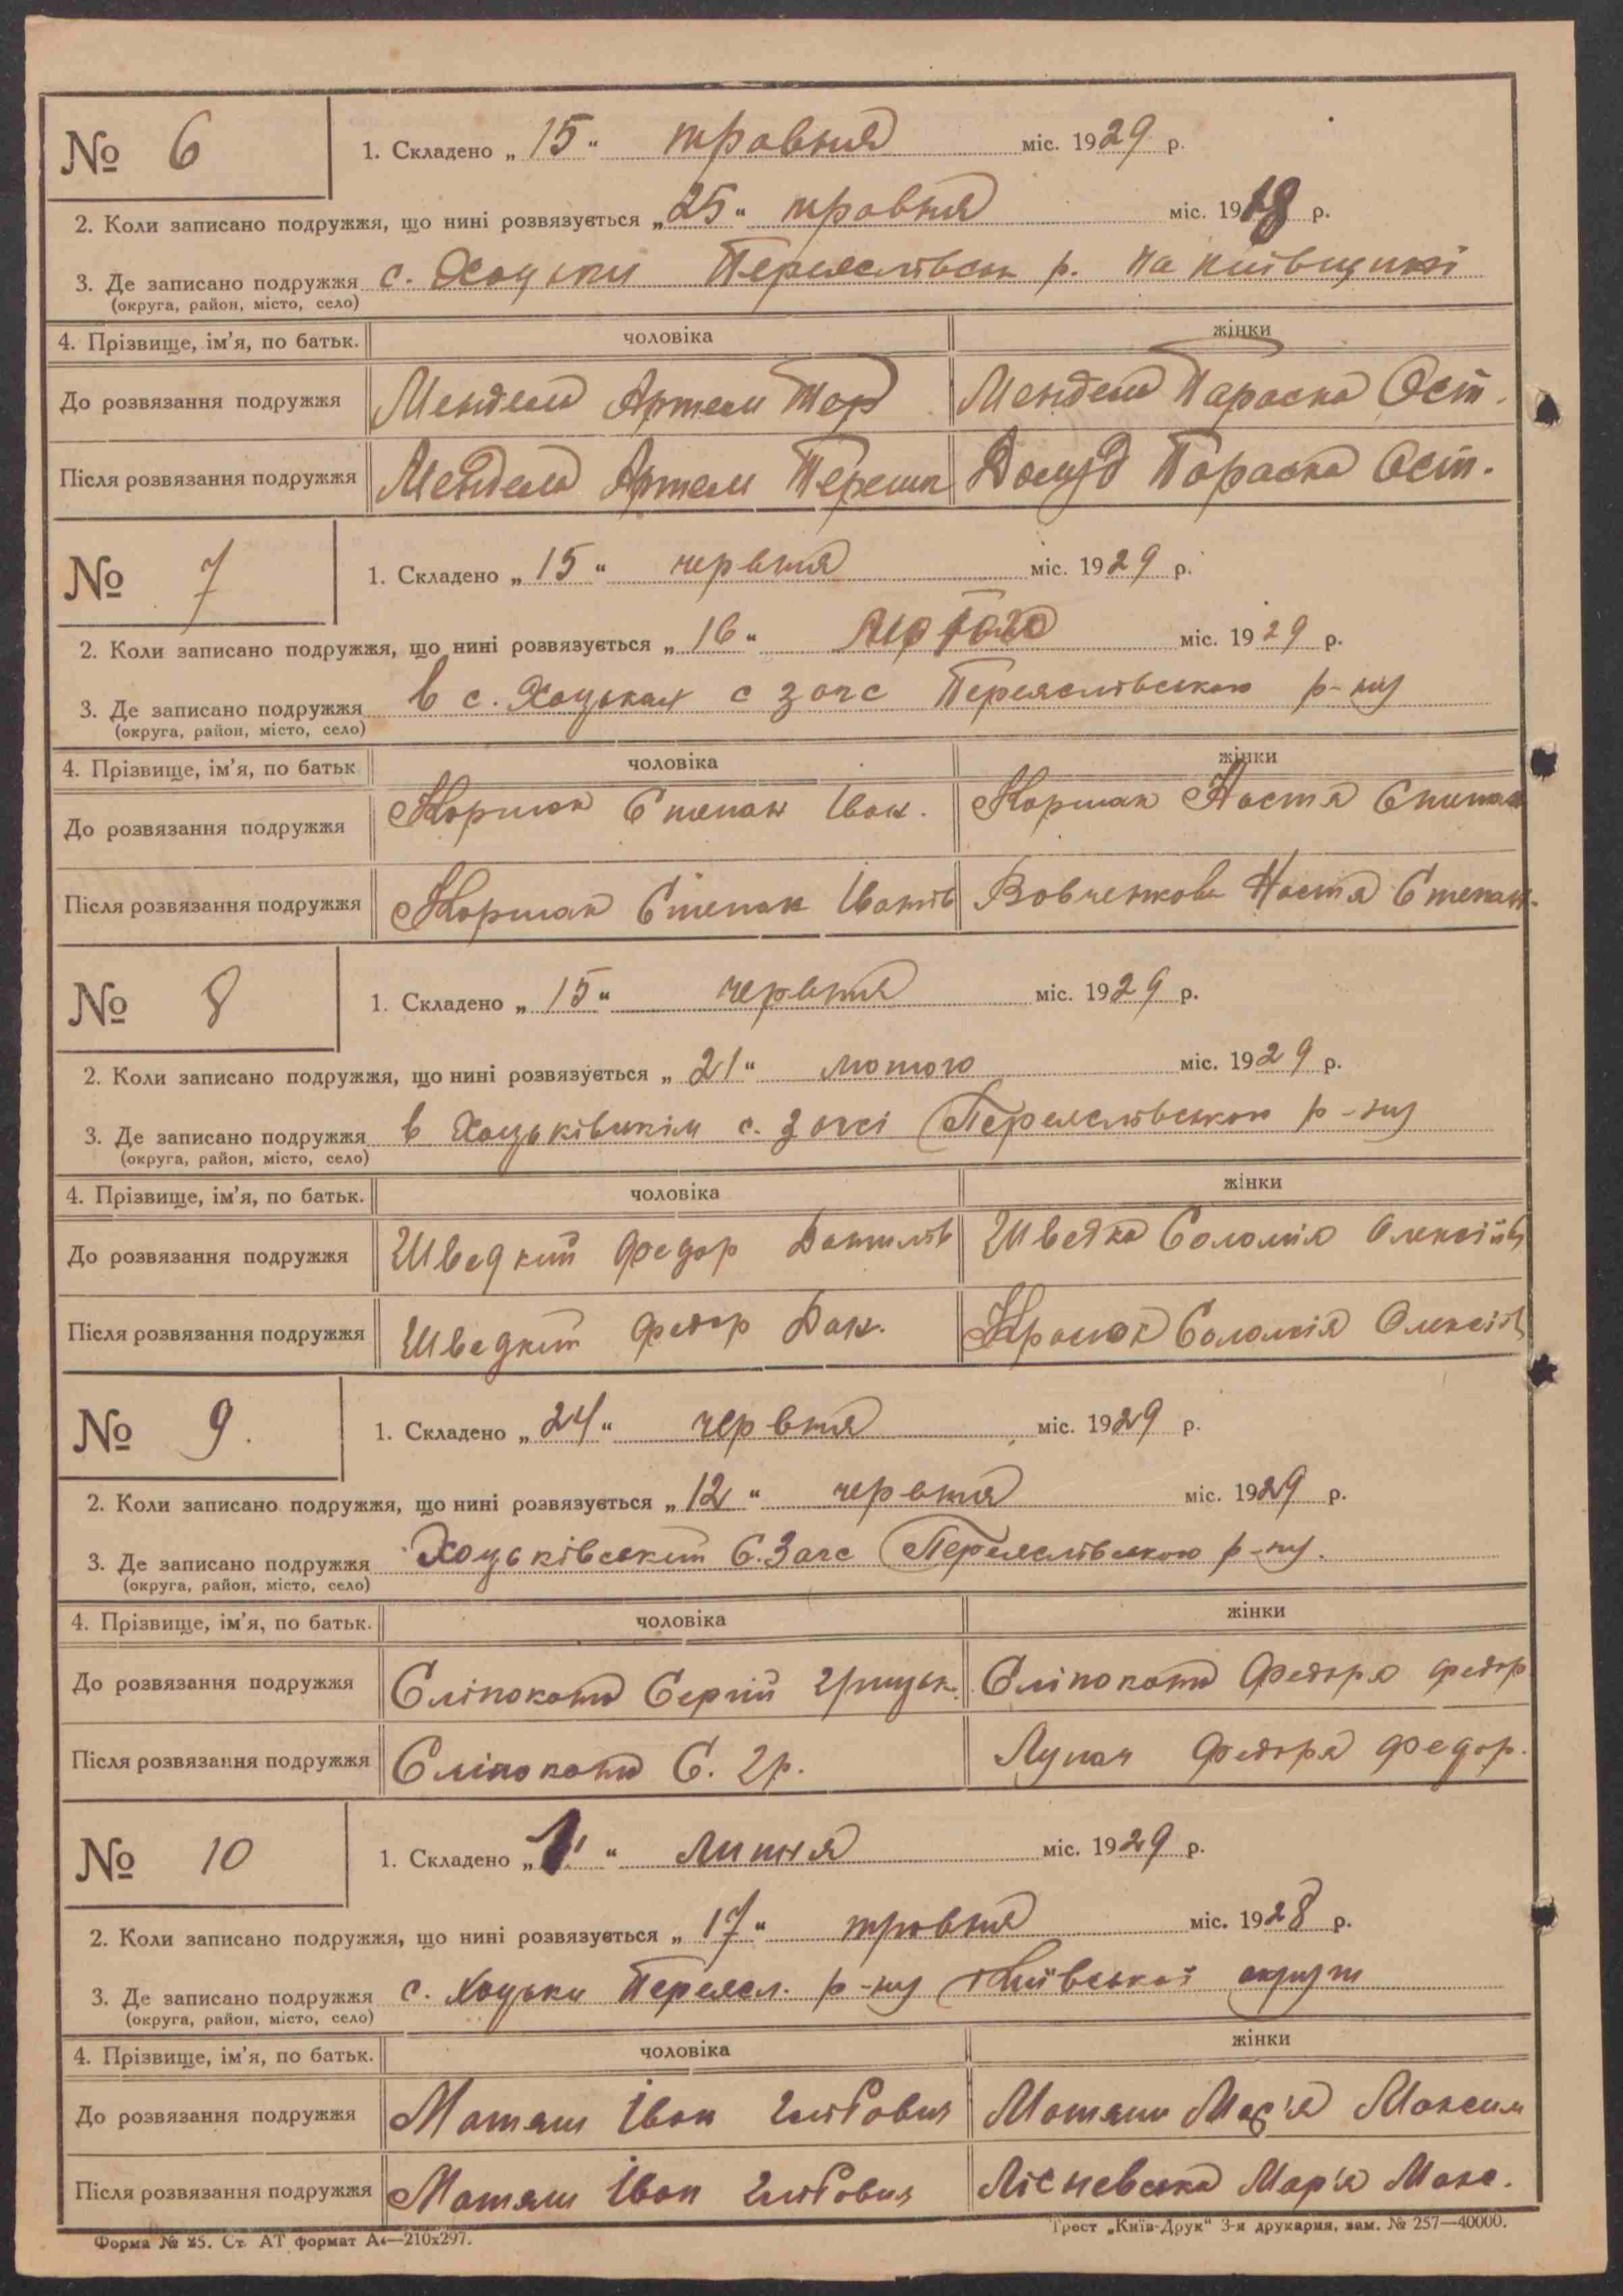 № 6
1. Складено „ 15 “ травня міс. 1929 р.
2. Коли записано подружжя, що нині розвязується „ 25 “ травня міс. 1918 р.
3. Де записано подружжя с. Хоцьки Переяслівськ р. на Київщині
(округа, район, місто, село)
4. Прізвище, ім’я, по батьк. чоловіка жінки
До розвязання подружжя Мендела Артем Тер Мендела Параска Ост.
Після розвязання подружжя Мендела Артем Тереш Параска Ост.
№ 7
1. Складено „ 15 “ червня міс. 1929 р.
2. Коли записано подружжя, що нині розвязується „ 16 “ лютого міс. 1929 р.
3. Де записано подружжя в с. Хоцьках с загс Переяслівського р-ну
(округа, район, місто, село)
4. Прізвище, ім’я, по батьк чоловіка жінки
До розвязання подружжя Коршак Степан Іван. Коршак Настя Степан
Після розвязання подружжя Коршак Степан Іванів Вовченкова Настя Степан.
№ 8
1. Складено „ 15 “ червня міс. 1929 р.
2. Коли записано подружжя, що нині розвязується „ 21 “ лютого міс. 1929 р.
3. Де записано подружжя в Хоцьківскім с. загсі Переяслівського р-ну
(округа, район, місто, село)
4. Прізвище, ім’я, по батьк. чоловіка жінки
До розвязання подружжя Шведкий Федор Данилів Шведка Соломія Олексіїв
Після розвязання подружжя Шведкий Федор Дан. Соломія Олексіїв
№ 9.
1. Складено „ 24 “ червня міс. 1929 р.
2. Коли записано подружжя, що нині розвязується „ 12 “ червня міс. 1929 р.
3. Де записано подружжя Хоцьківський С. Загс Переяслівського р-ну.
(округа, район, місто, село)
4. Прізвище, ім’я, по батьк. чоловіка жінки
До розвязання подружжя Сліпоконь Сергій Грицьк. Сліпоконь Федора Федор
Після розвязання подружжя Сліпоконь С. Гр. Лупач Федора Федор.
№ 10
1. Складено „ 1 “ Липня міс. 1929 р.
2. Коли записано подружжя, що нині розвязується „ 17 “ травня міс. 1928 р.
3. Де записано подружжя с. Хоцьки Переясл. р-ну Київської округи
(округа, район, місто, село)
4. Прізвище, ім’я, по батьк. чоловіка жінки
До розвязання подружжя Маташ Іван Глібович Маташ Мар'я Максим
Після розвязання подружжя Маташ Іван Глібович Лісневська Мар'я Макс.
Форма № 25. Ст. АТ формат А4—210х297. Трест „Київ-Друк“ 3-я друкарня, зам. № 257—40000.